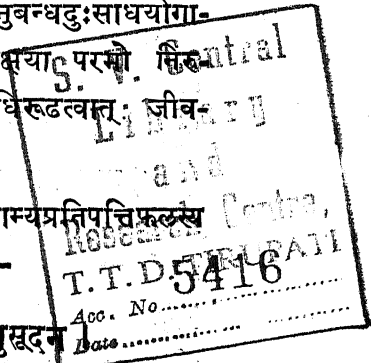 नुबन्धदुःसाधयोगा-
क्षया परमो निरु-
धिरूढत्वात् जीव-
ाम्यप्रतिपत्तिफलस्य
-
ुसूदन !
S. V. Central
Library
and
Research Centre,
T. T. D. TIRUPATI
5416
Acc. No..........
Date..........